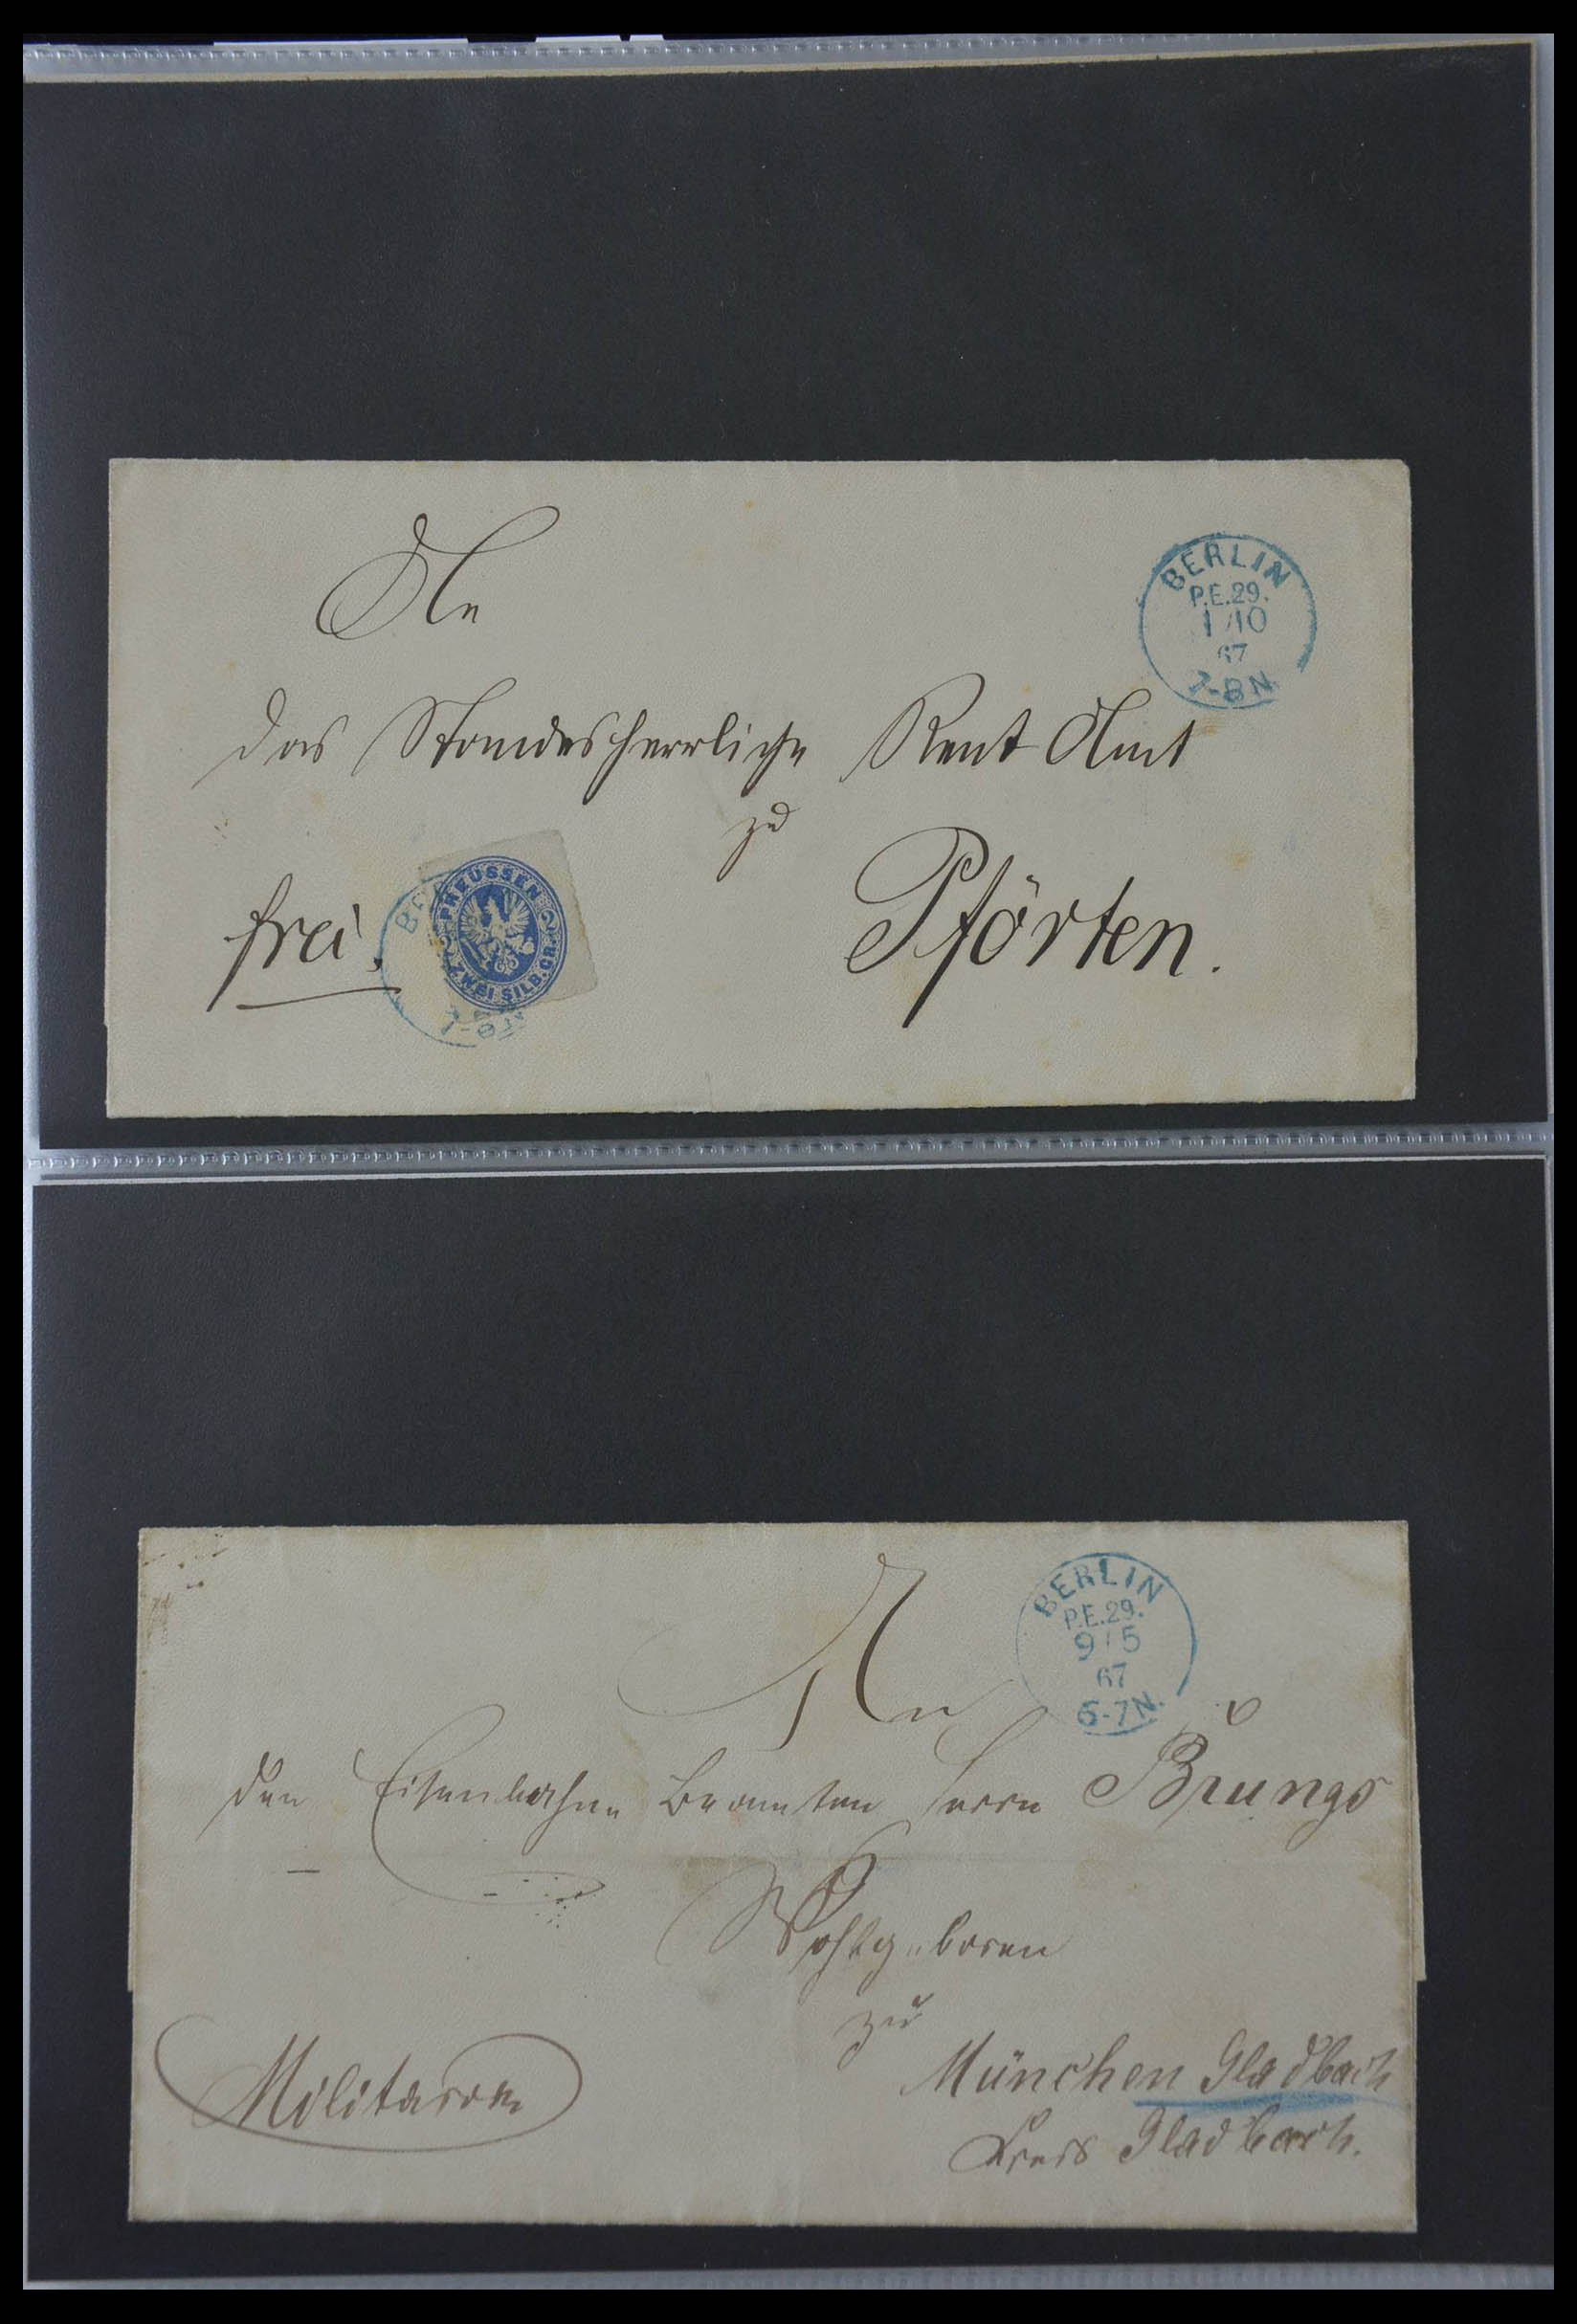 An
BERLIN
P.E.29.
1/10
67
7-8N.
das Standesherrliche Rent Amt
zu
frei.
PREUSSEN
2 2
ZWEI SILB. GR.
Pförten.
BERLIN
P.E.29.
9/5
67
6-7N.
An
den Eisenbahn Beamten Herrn Brüngs
Wohlgeboren
zu
Militaria
München Gladbach
Kreis Gladbach.